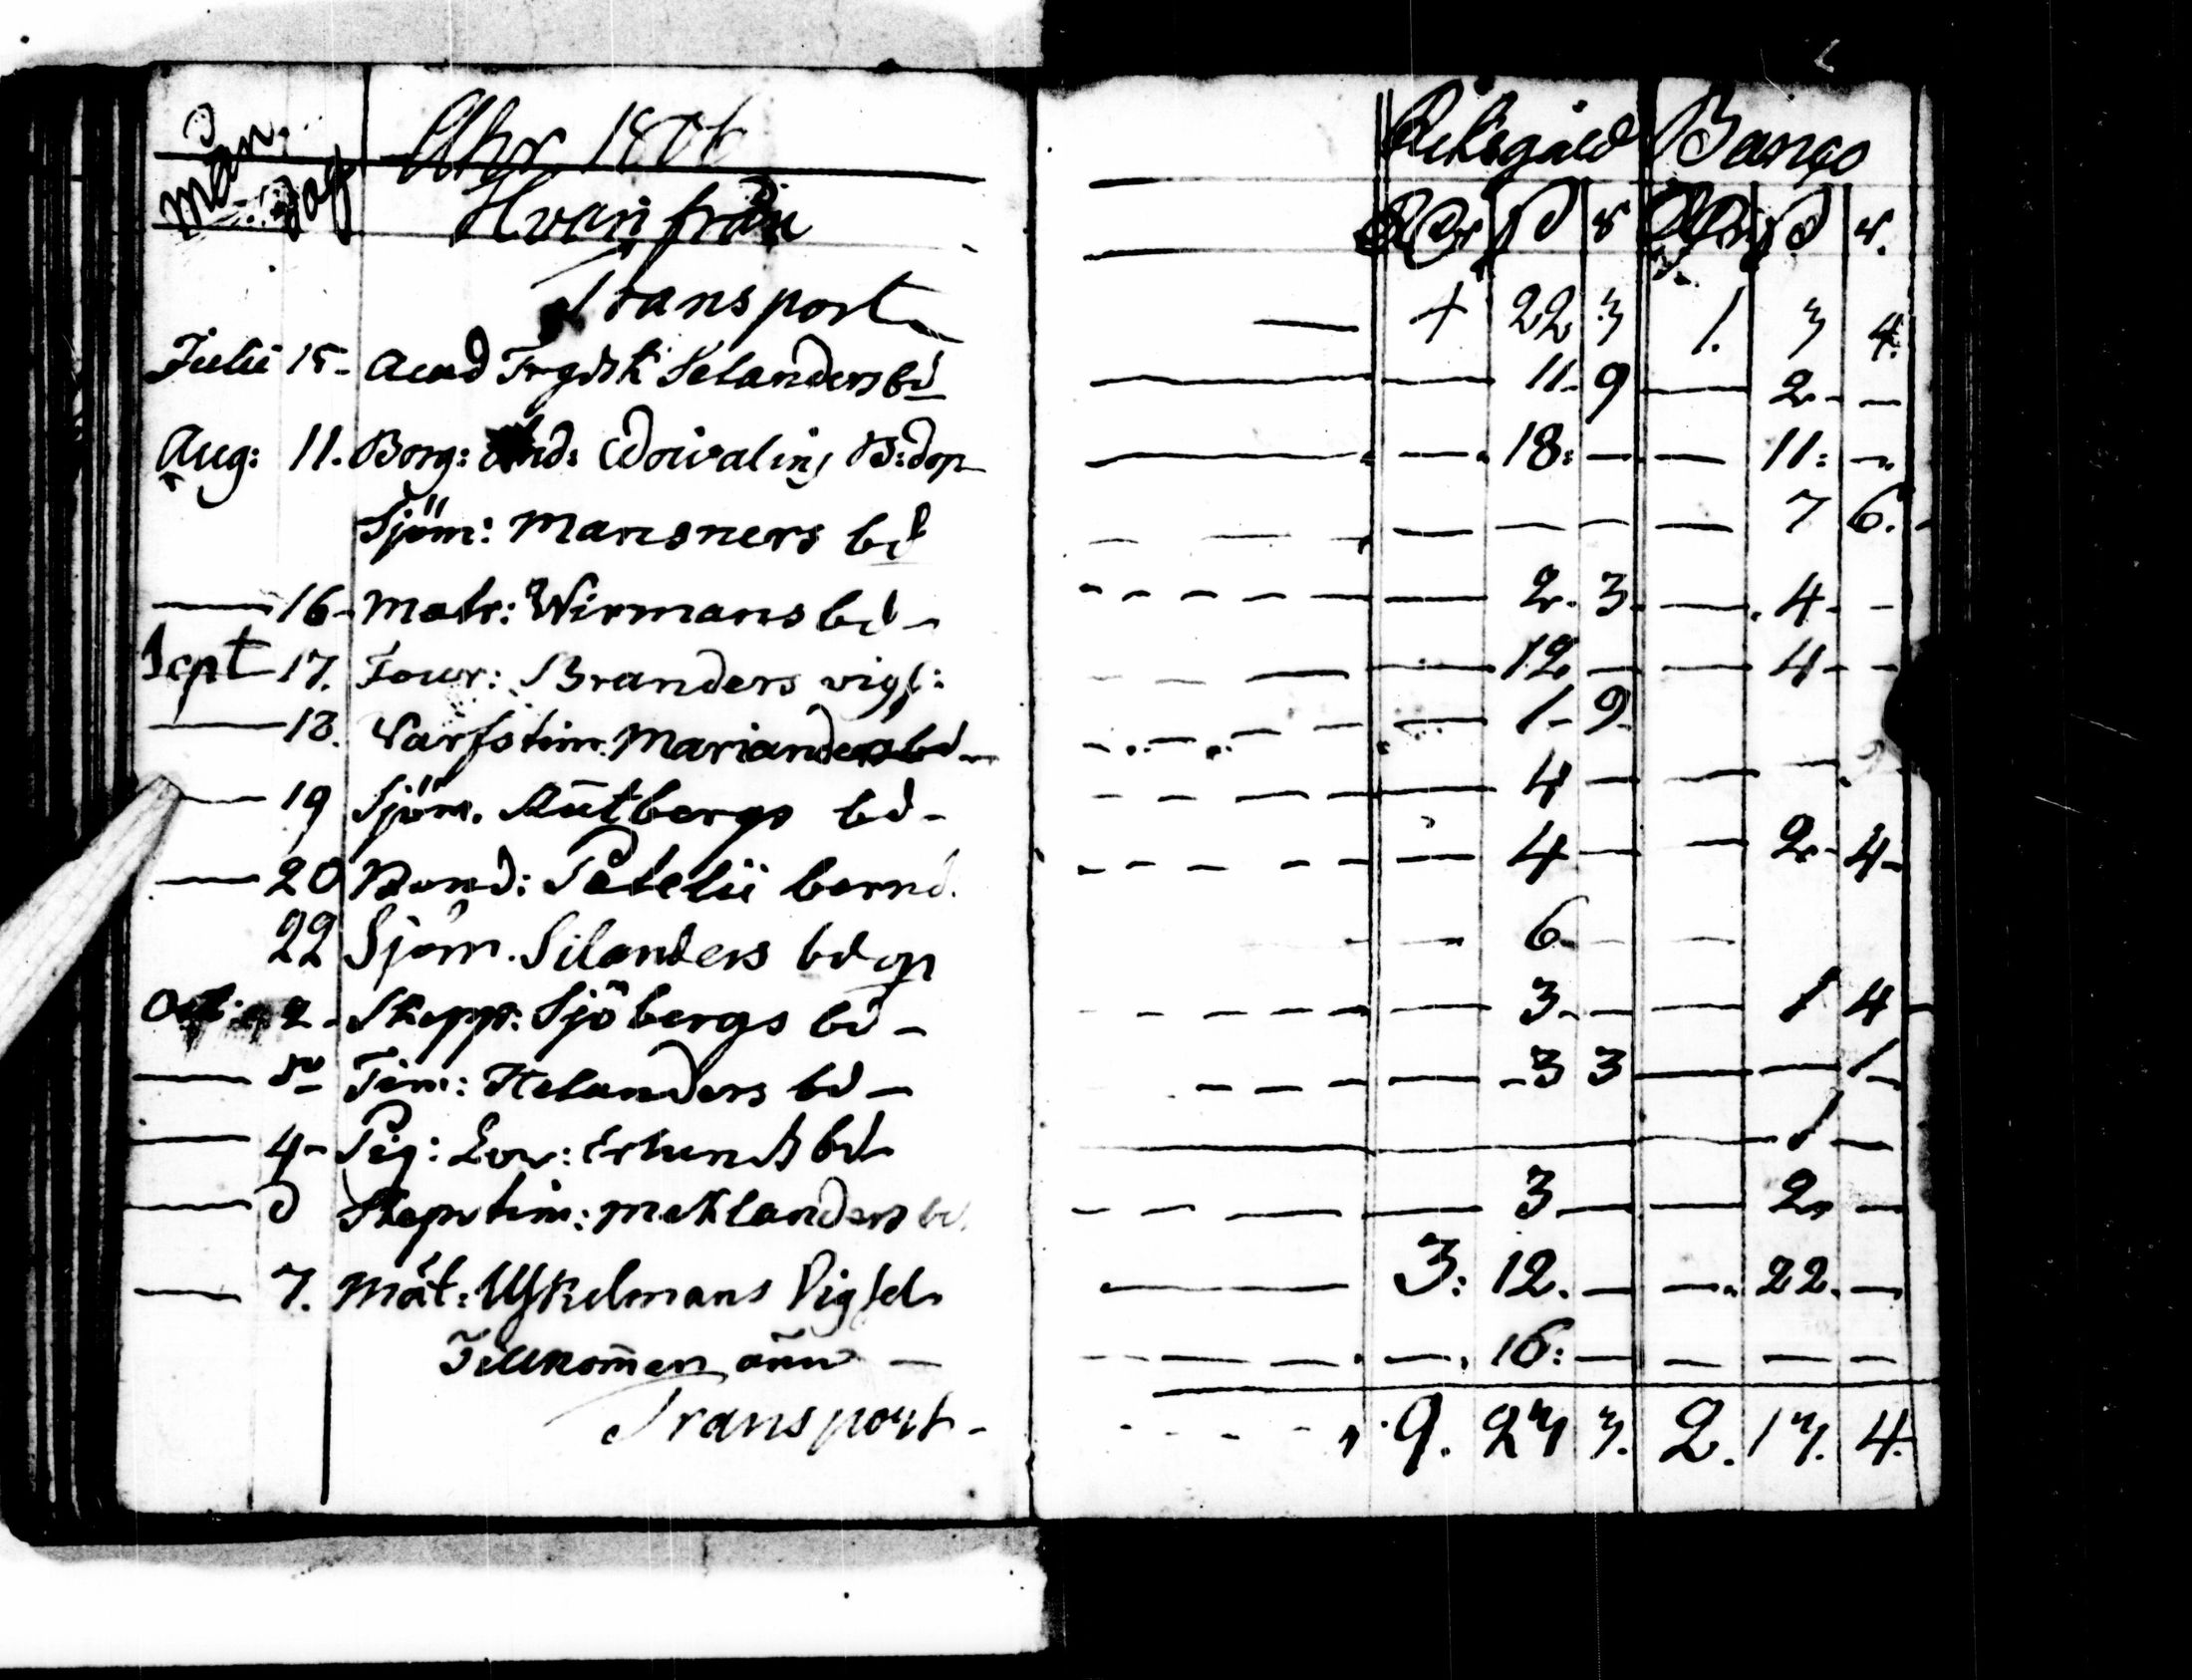 Månd. Dag Åhr 1806 Riksgäld Banco
Hvarifrån RDr ß r RDr ß r.
Transport 4 22 3 1. 3 4.
Julii 15 - Acad Trgdsk Selanders bd 11 - 9 2 -
Aug: 11. Borg: And: Edwalins B:dop 18: 11:
Sjöm: Mansners bd 7 6.
16 - Matr: Wirmans bd - 2. 3 4 -
Sept 17. Four: Branders vigs: 12 4 -
18. Varfstim. Marianders bd - 1 - 9
19 Sjöm. Åutbergs bd - 4
20 Bond: Petelii barnd. 4 2 - 4 -
22 Sjöm. Silanders bdop 6
Oct: 2 - Skepp: Sjöbergs bd - 3 - 1 4
do Tim: Helanders bd - 3 3 1
4 - Pig: Lov: Erlunds bd 1
d Skepstim: Meklanders bd. 3 2
7. Måt: Uskelmans Vigsel 3: 12. 22.
Tillkommen ännu 16:
Transport - 9. 27 3. 2. 13. 4.